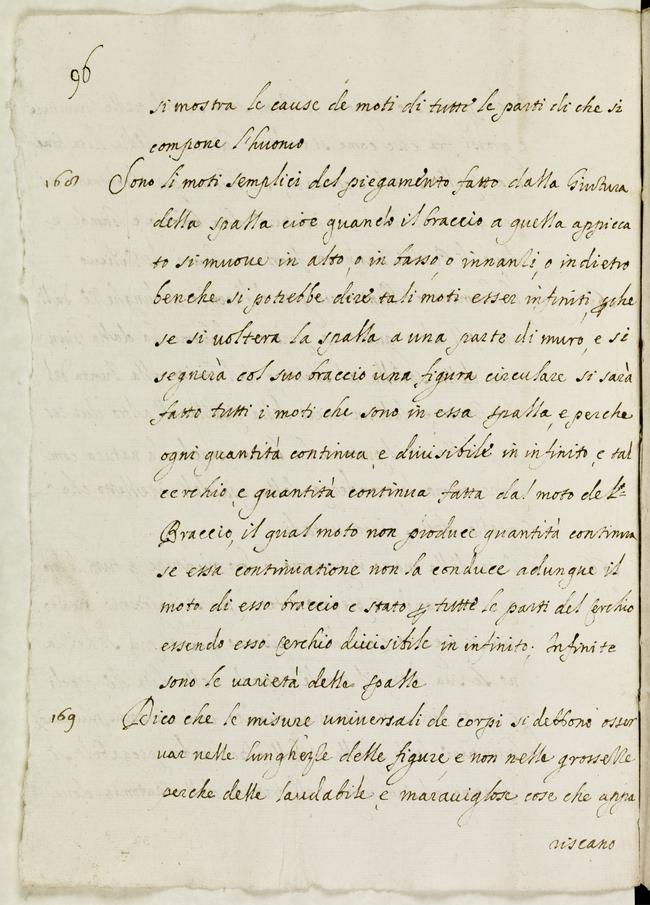 96
si mostra le cause de moti di tutte le parti di che si
compone l'huomo
168 Sono li moti semplici del piegamento fatto dalla Giuntura
della spalla cioe quando il braccio a quella appicca
to si muove in alto, o in basso, o innanzi, o indietro
benche si potrebbe dire tali moti esser infiniti, pche
se si voltera la spalla a una parte di muro, e si
segnerà col suo braccio una figura circulare si sarà
fatto tutti i moti che sono in essa spalla, e perche
ogni quantità continua, e divisibile in infinito, e tal
cerchio, e quantità continua fatta dal moto del
Braccio, il qual moto non produce quantità continua
se essa continuatione non la conduce adunque il
moto di esso braccio e stato p tutte le parti del Cerchio
essendo esso Cerchio divisibile in infinito; Infinite
sono le varietà delle spalle
169 Dico che le misure universali de corpi si debbono osser
var nelle lunghezze delle figure, e non nelle grossezze
perche delle laudabile, e maravigliose cose che appa
riscano